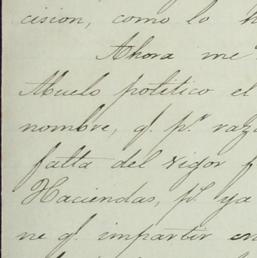 cision, como lo h
Ahora me
Muelo politico el
nombre, q. pr. razo
falta del vigor p
Haciendas, pr. ya
ne q. impartir en